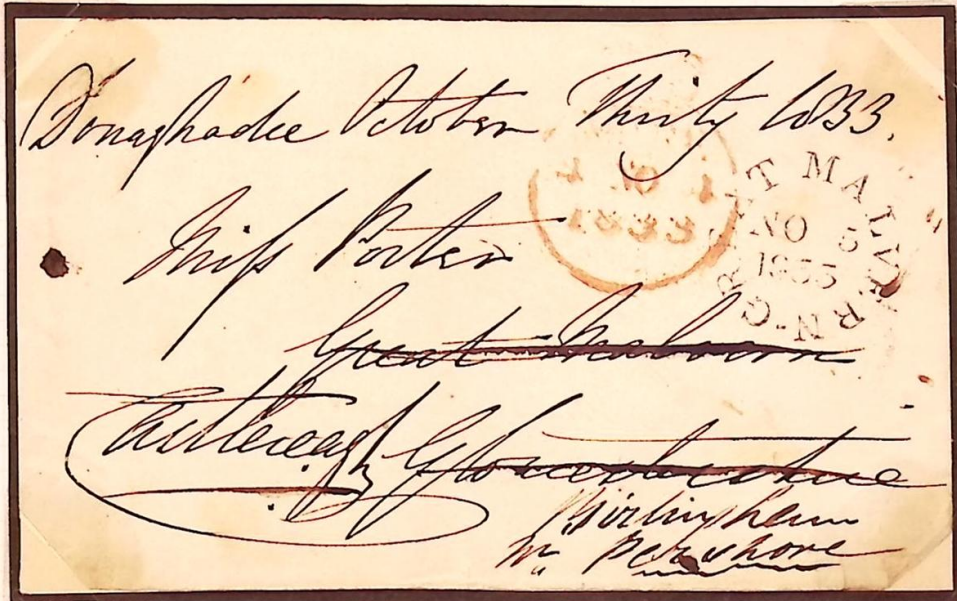 Donaghadee October Thirty 1833.
Miss Porter
Great Malvern
Castlereagh Gloucestershire
Birlingham
Nr Pershore
GREAT MALVERN
NO 5
1833
1833